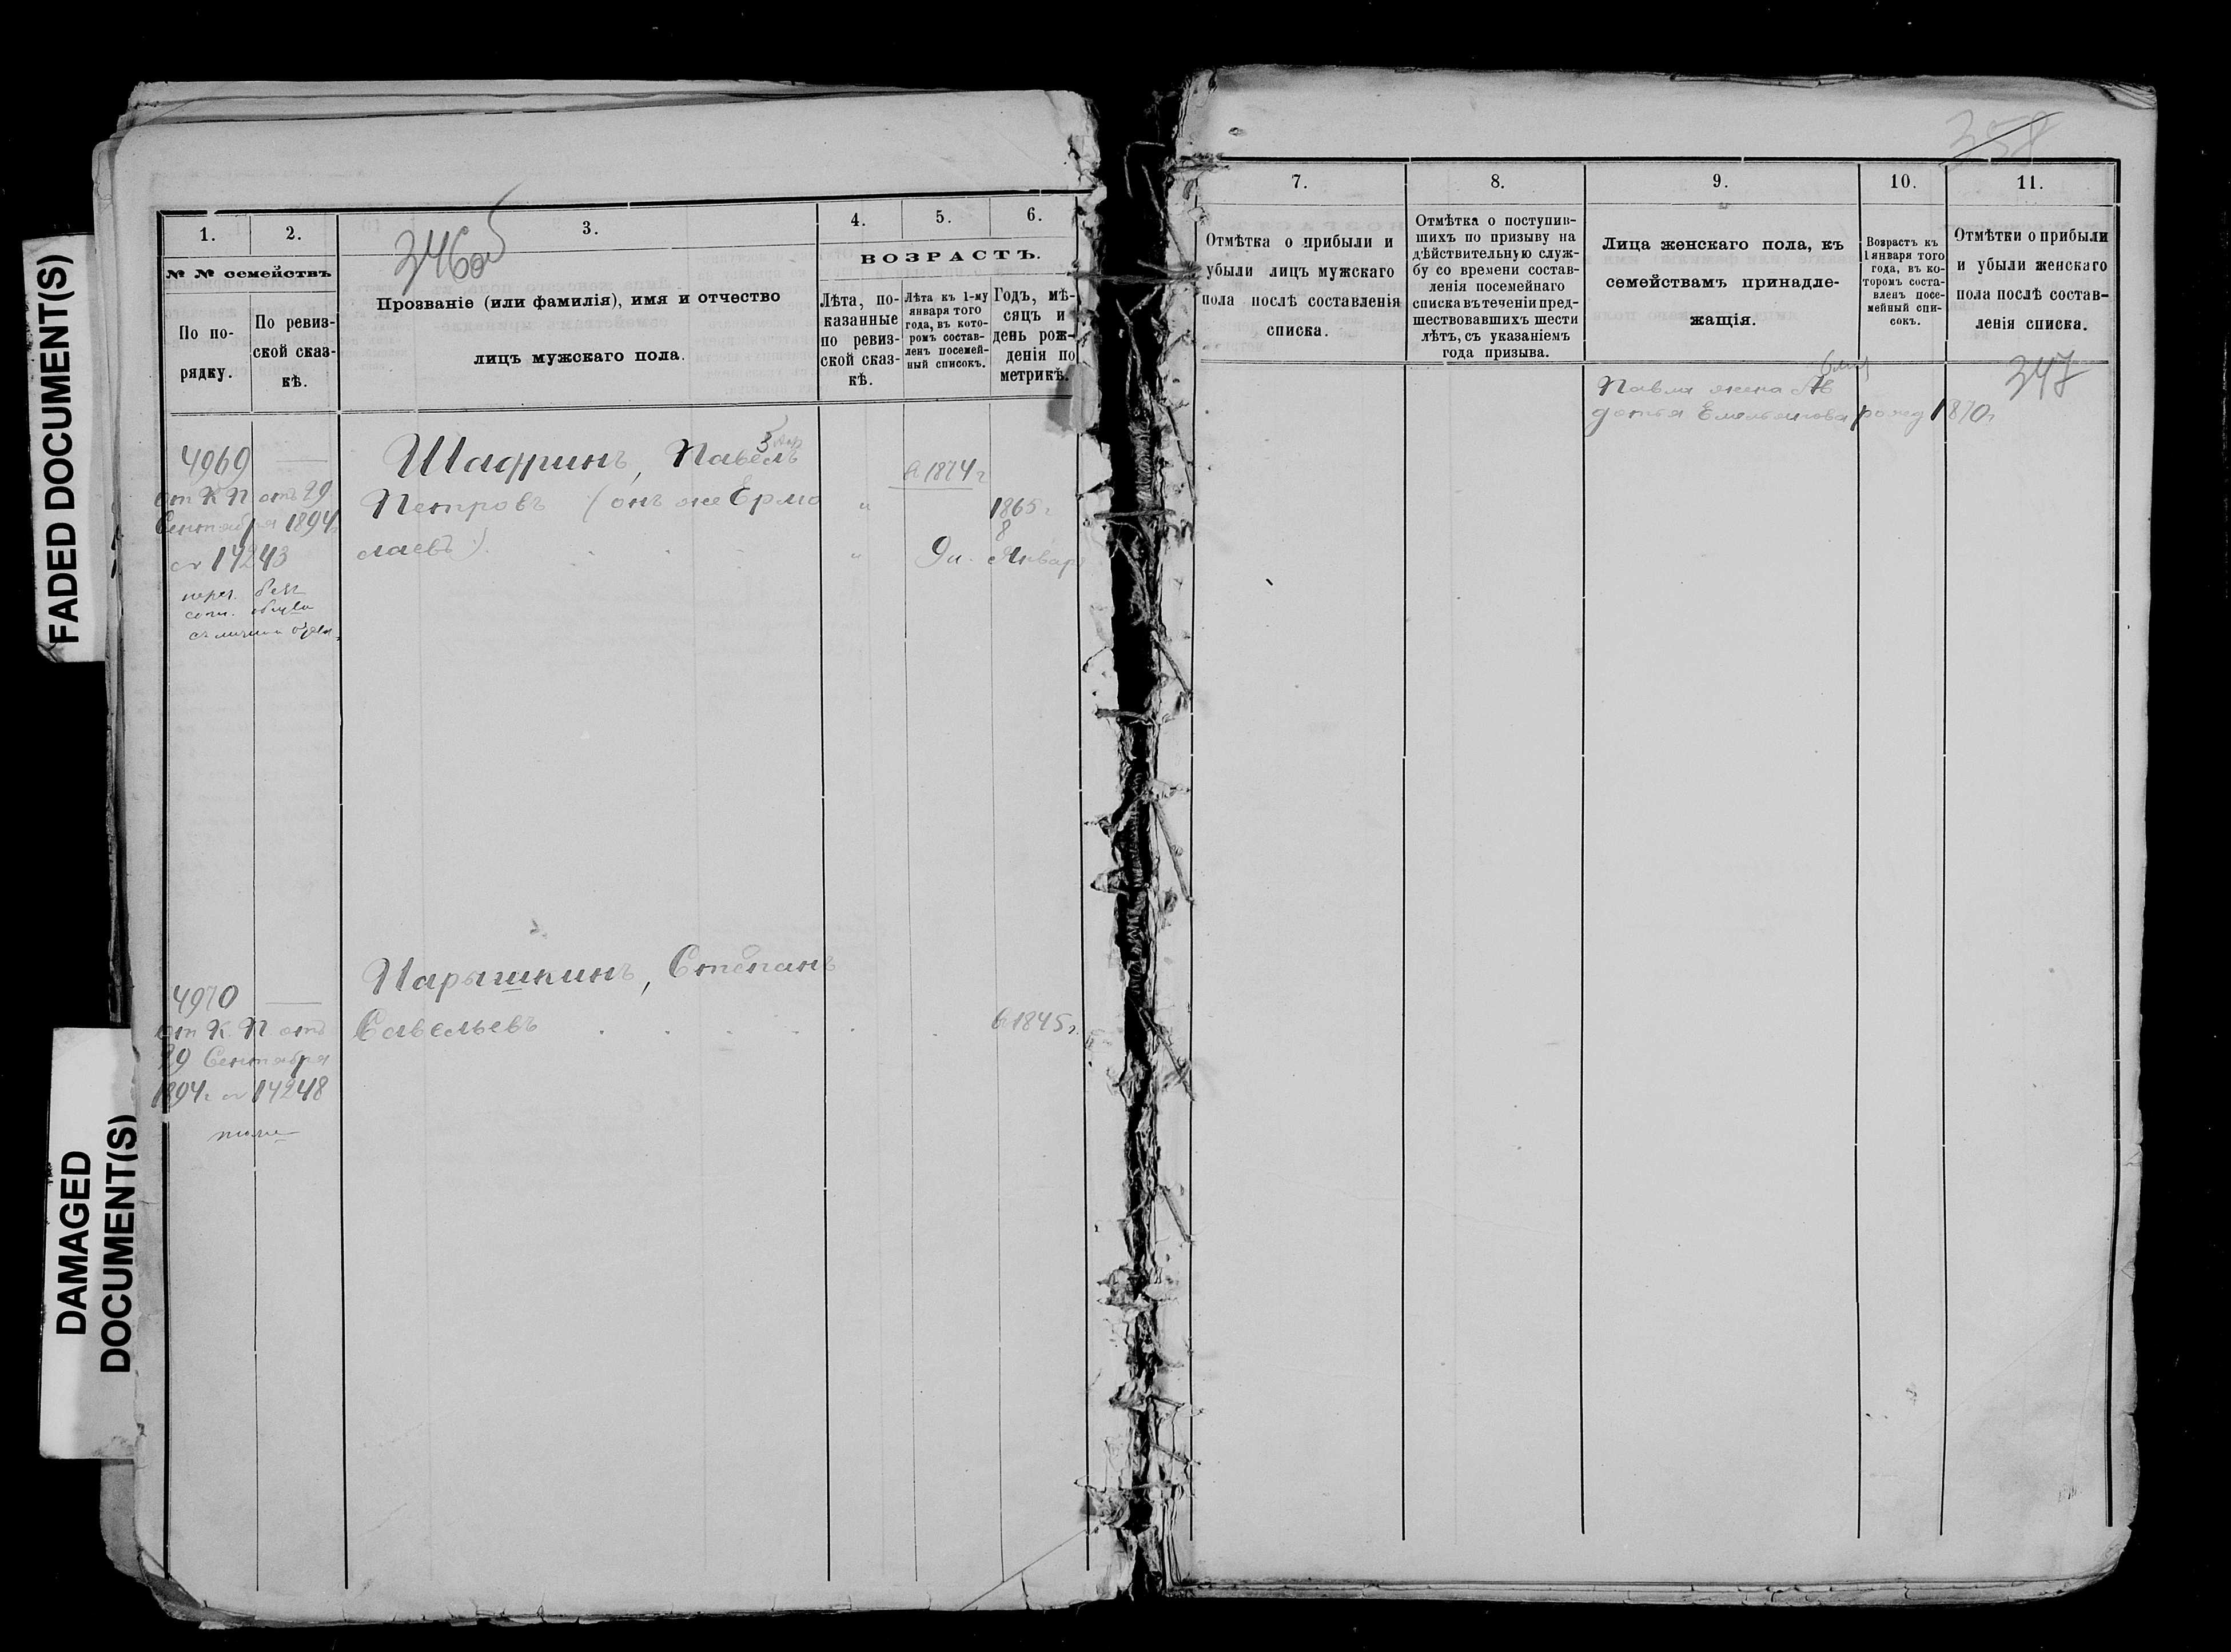 FADED DOCUMENT(S)
DAMAGED
DOCUMENT(S)
346об
1.
2.
3.
4.
5.
6.
№ № семействъ
По по-
рядку.
По ревиз-
ской сказ-
кѣ.
Прозваніе (или фамилія), имя и отчество
лицъ мужскаго пола.
ВОЗРАСТЪ.
Лѣта, по-
казанные
по ревиз-
ской сказ-
кѣ.
Лѣта къ 1-му
января того
года, въ кото-
ромъ состав-
ленъ посемей-
ный списокъ.
Годъ, мѣ-
сяцъ и
день рож-
денія по
метрикѣ.
4969
от К П отъ 29
Сентября 1894 г
№ 14243
Шадринъ, Павелъ
Петровъ (онъ же Ермо
лаевъ).
в 1874 г
9 л.
1865 г
8
Январ
4970
от К. П отъ
29 Сентября
1894 г № 14248
Нарышкинъ, Степанъ
Савельевъ
в 1845 г
358
7.
8.
9.
10.
11.
Отмѣтка о прибыли и
убыли лицъ мужскаго
пола послѣ составленія
списка.
Отмѣтка о поступив-
шихъ по призыву на
дѣйствительную служ-
бу со времени состав-
ленія посемейнаго
списка въ теченіи пред-
шествовавшихъ шести
лѣтъ, съ указаніемъ
года призыва.
Лица женскаго пола, къ
семействамъ принадле-
жащія.
Возрастъ къ
1 января того
года, въ ко-
торомъ соста-
вленъ посе-
мейный спи-
сокъ.
Отмѣтки о прибыли
и убыли женскаго
пола послѣ состав-
ленія списка.
347
Павла жена Ав
дотья Емельянова рожд 1870 г